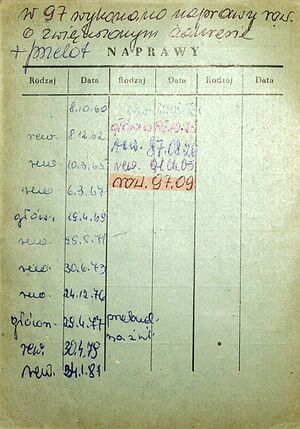 w 97 wykonano naprawy rew.
o zwiększonym zakresie
+ przelot
NAPRAWY
Rodzaj Data Rodzaj Data Rodzaj Data
8.10.60
rew. 8.12.62 główna
rew. 10.3.65 rew. 87.08.26
rew. 6.3.67 rew. 91.04.05
główn. 19.4.69 rew. 97.09
rew.
rew. 30.6.73
rew. 24.12.76
główn. 29.4.77 przebud. na żnż
rew. 30.4.79
rew. 24.1.81